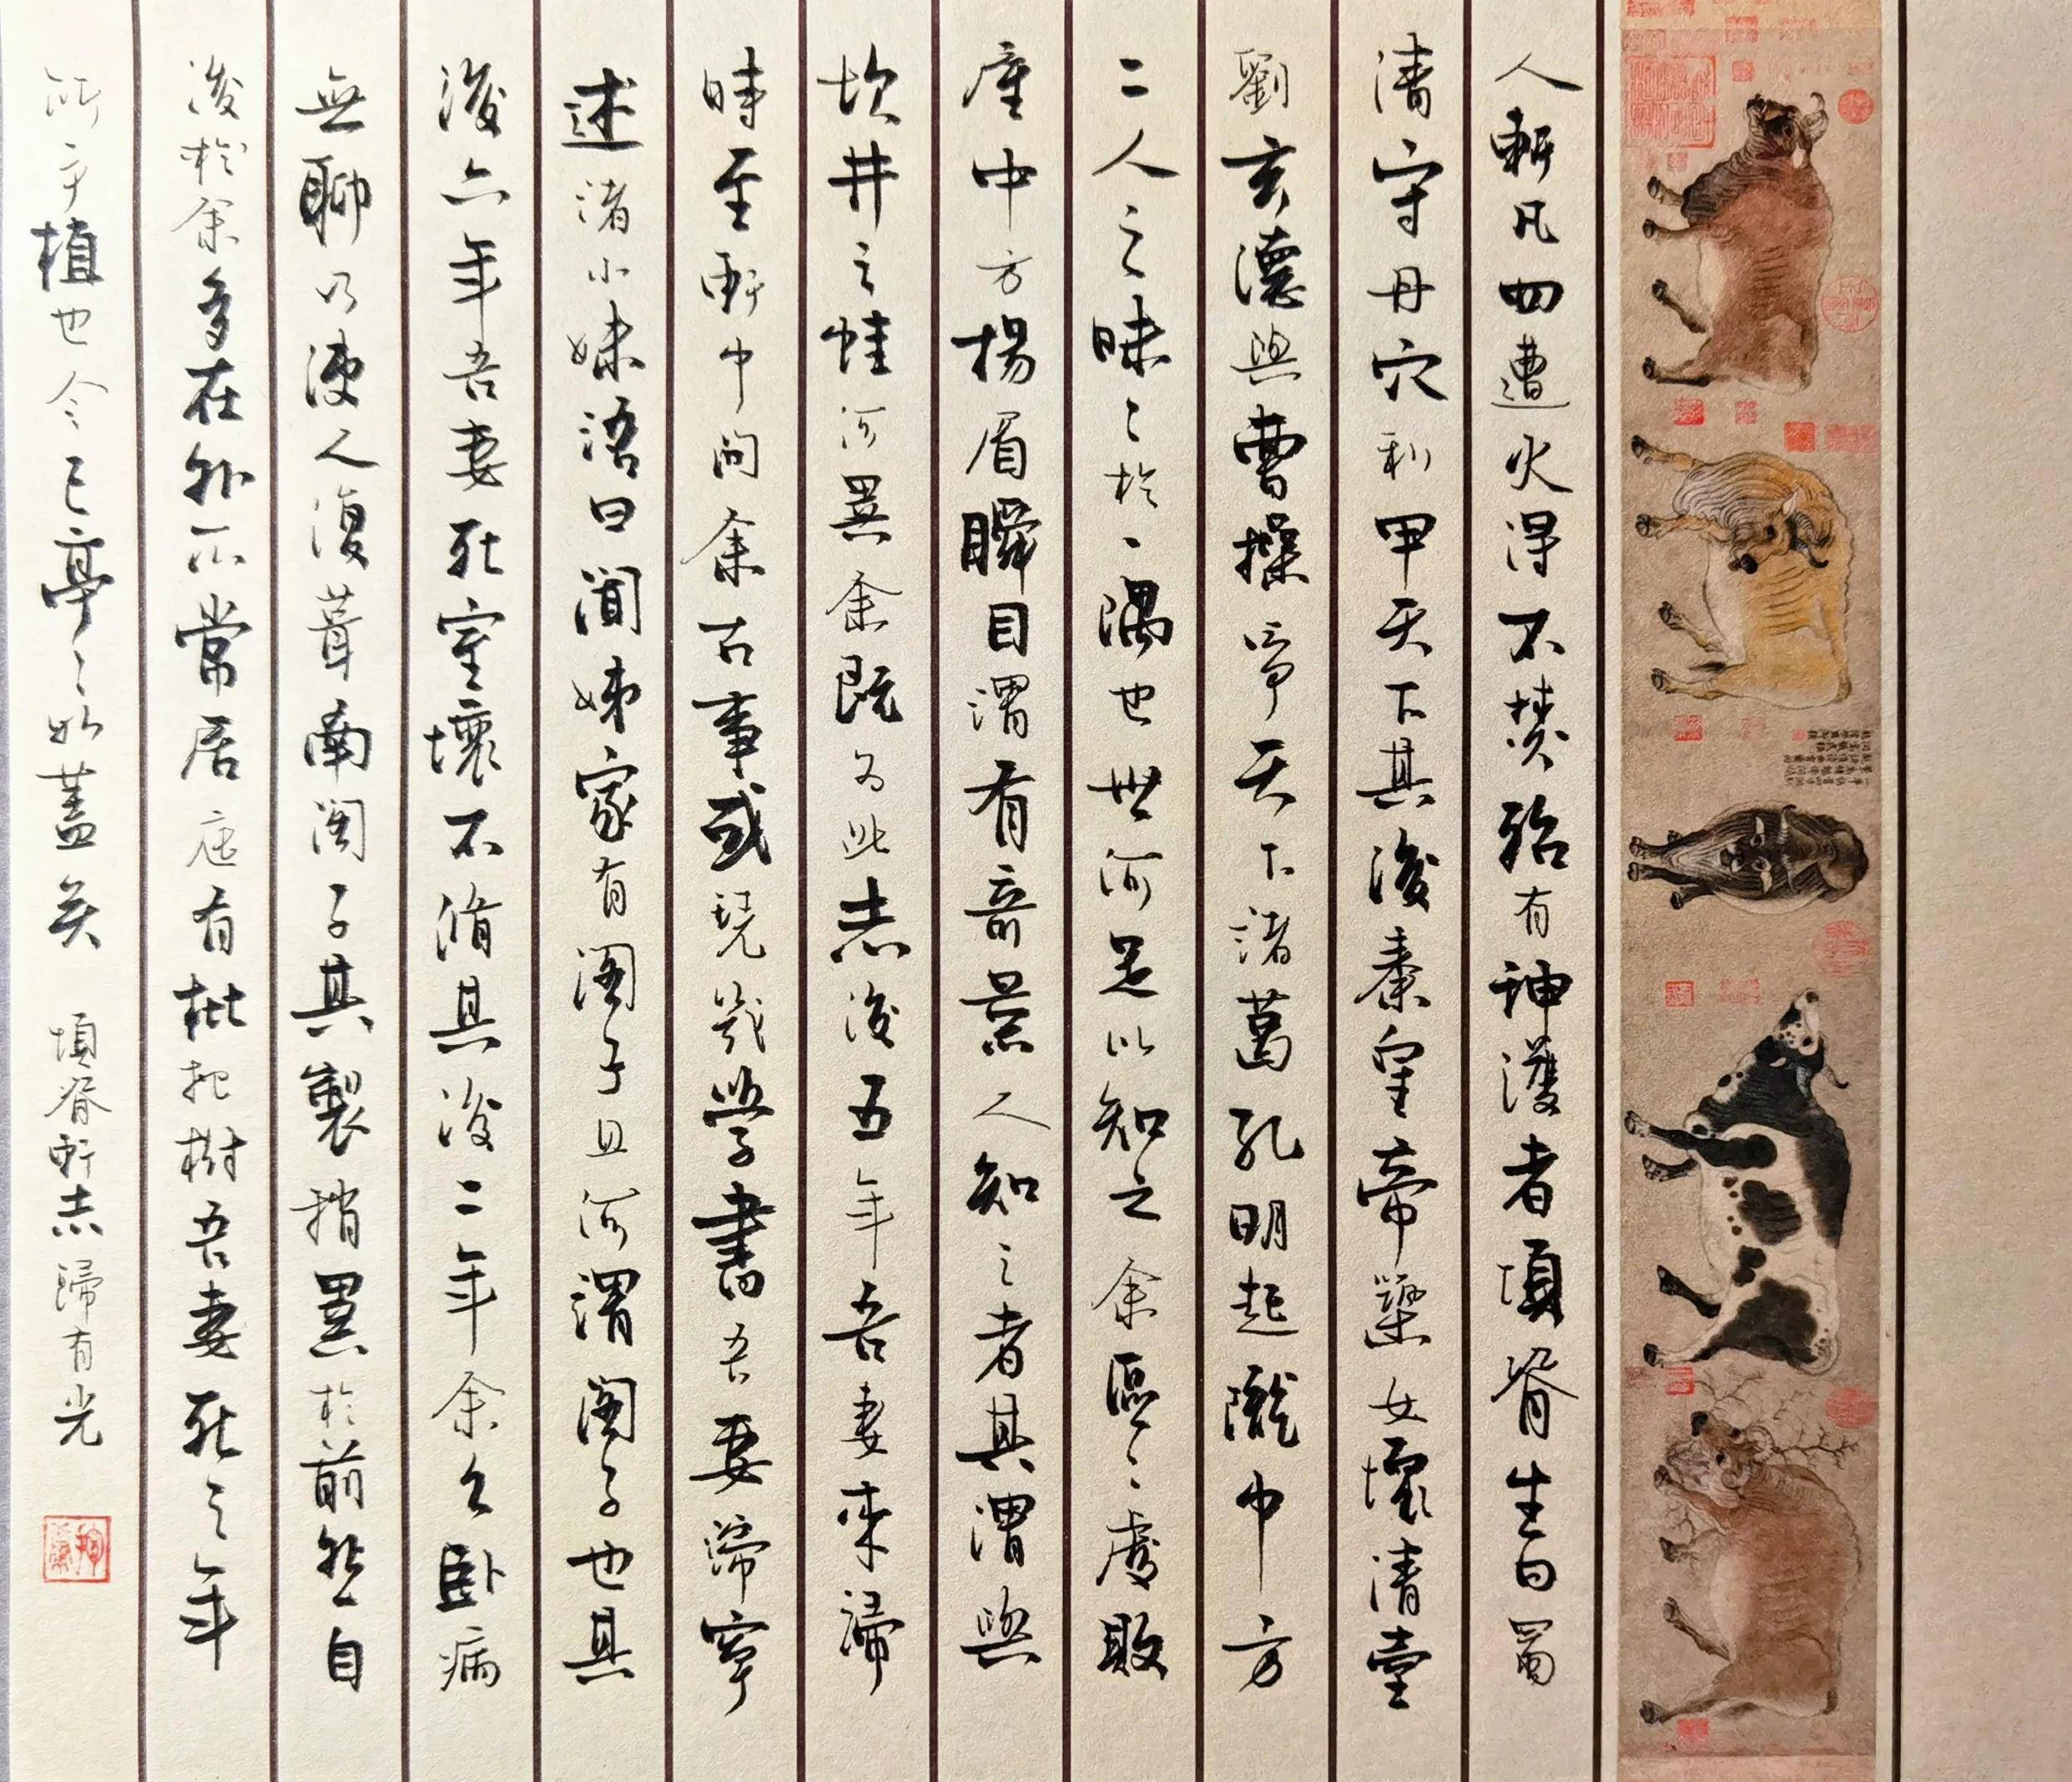 人軒凡四遭火得不焚殆有神護者項脊生曰蜀
清守丹穴利甲天下其後秦皇帝築女懷清臺
劉玄德與曹操爭天下諸葛孔明起隴中方
二人之昧〻於一隅也世何足以知之余區〻處敗
屋中方揚眉瞬目謂有奇景人知之者其謂與
坎井之蛙何異余既為此志後五年吾妻來歸
時至軒中問余古事或凭几學書吾妻歸寧
述諸小妹語曰聞姊家有閣子且何謂閣子也其
後六年吾妻死室壞不修其後二年余久臥病
無聊乃使人復葺南閣子其製稍異於前然自
後於余多在外不常居庭有枇杷樹吾妻死之年
所手植也今已亭〻如蓋矣 項脊軒志歸有光